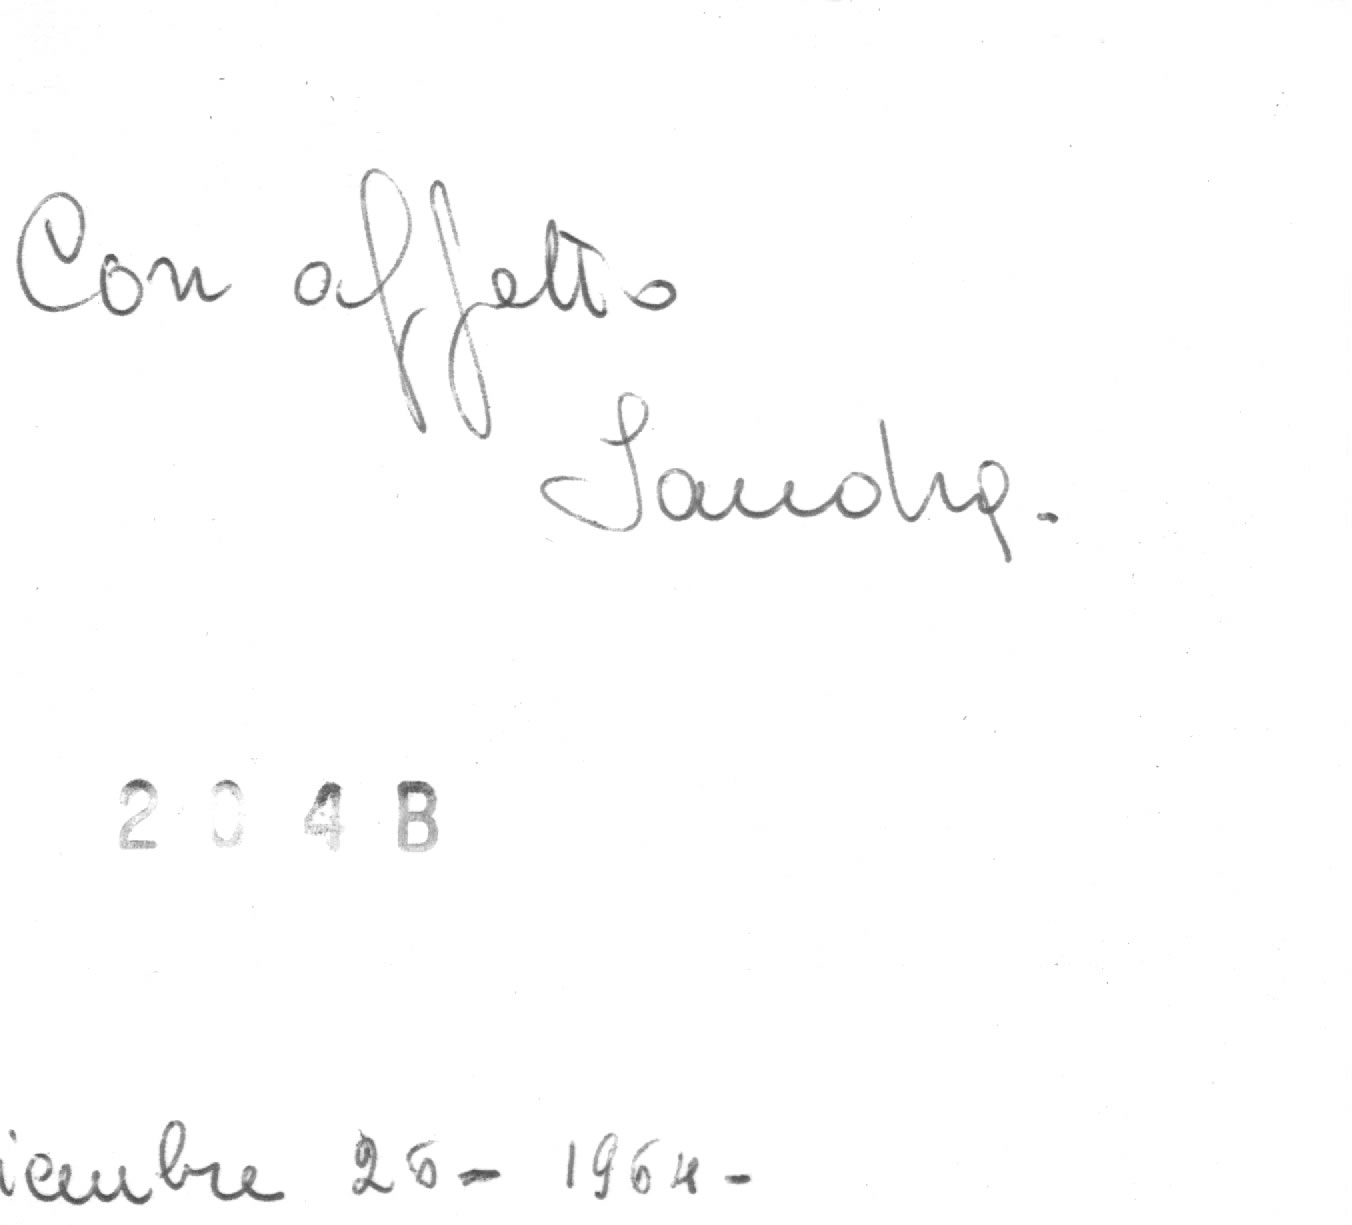 Con affetto
Sandra.
204B
iembre 26- 1964-